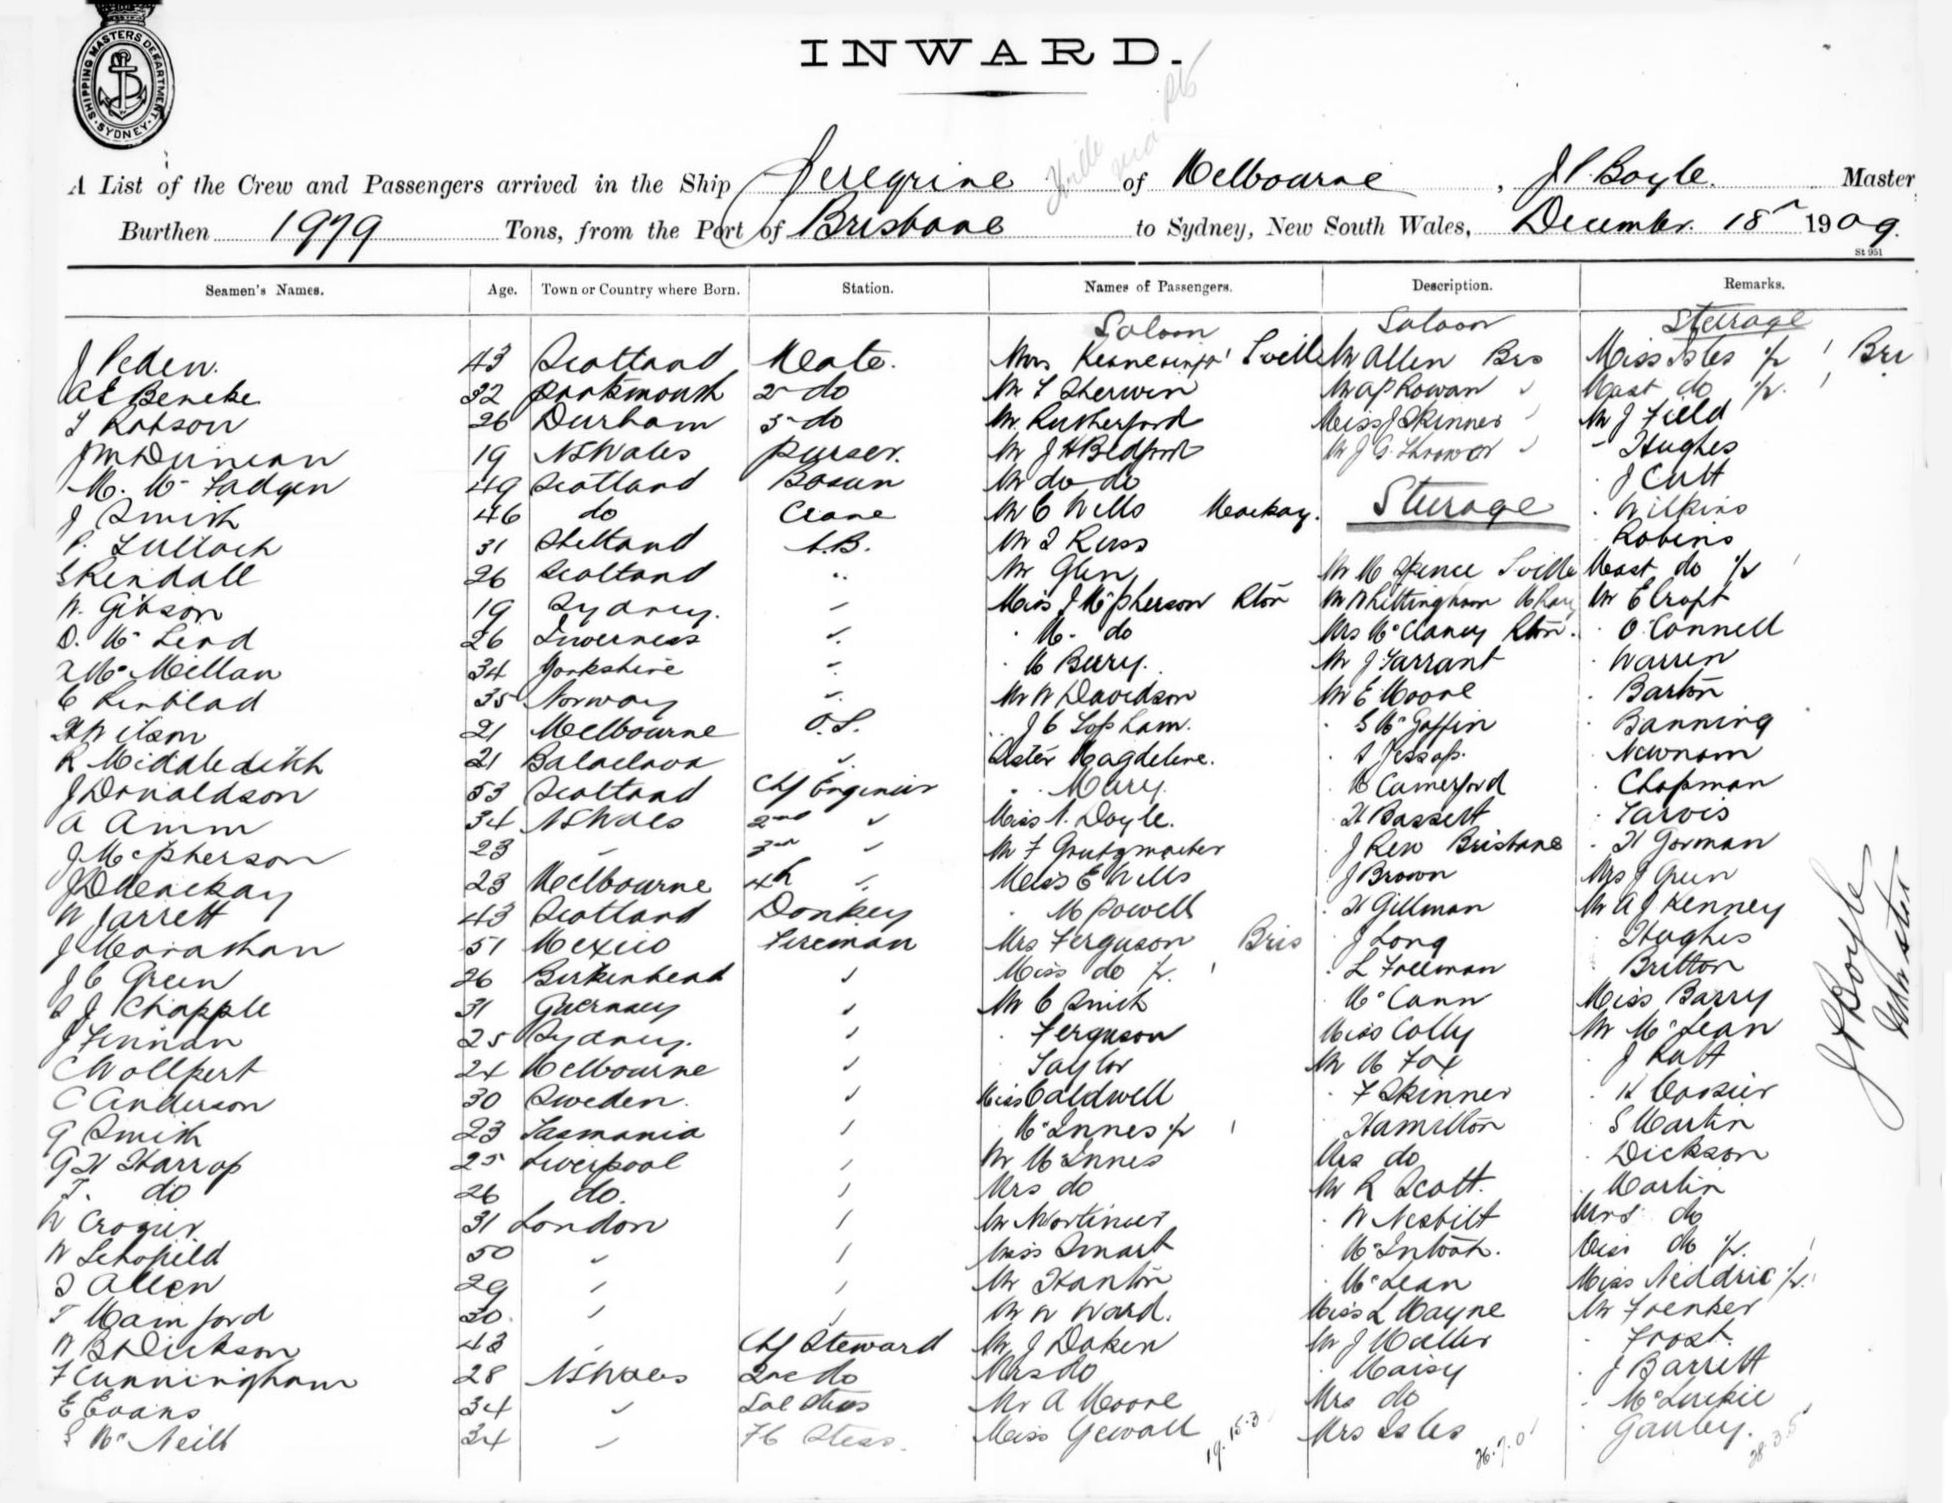 SHIPPING MASTERS DEPARTMENT
SYDNEY
INWARD.
A List of the Crew and Passengers arrived in the Ship Peregrine of Melbourne, J P. Boyle. Master
Burthen 1979 Tons, from the Port of Brisbane to Sydney, New South Wales, December. 18 1909.
St 951
Seamen's Names. Age. Town or Country where Born. Station. Names of Passengers. Description. Remarks.
Saloon Saloon Steerage
J Peden. 43 Scotland Mate. Mr Allen Bris Miss Isles Bri
A E Beneke 32 Portsmouth 2 do Mr F Sherwin Mr A P Rowan Mast do
T Robson 26 Durham 3 do Mr Rutherford Miss J Skinner Mr J Field
J M Duncan 19 N S Wales Purser. Mr J H Bedford Mr J G Thrower Hughes
M. Mc Fadgen 49 Scotland Bosun Mr do do J Cutt
J Smith 46 do Crane Mr C Wills Mackay. Steerage Wilkins
P. Tulloch 31 Shetland A.B. Mr T Russ Robins
S Rendall 26 Scotland " Mr Glen Mr M Spence Sville Mast do
W. Gibson 19 Sydney. " Miss J McPherson Rton Mr Whittingham Mr E Croft
D. Mc Leod 26 Inverness " M. do Mrs McClaney Rton. O'Connell
Mc Millan 34 Yorkshire " M Beery. Mr J Tarrant Warren
C Linblad 35 Norway " Mr W Davidson Mr E Moore Barton
H Wilson 21 Melbourne O.S. J C Topham. S McGaffin Banning
R Middleditch 21 Balaclava " Sister Magdelene. Jessop. Newnam
J Donaldson 53 Scotland Chf Engineer " Mary. Camerford Chapman
A Amm 34 N S Wales 2nd " Miss N. Doyle. H Bassett Jarvis
J McPherson 23 " 3rd " Mr F Grutzmacher J Rew Brisbane H Gorman
J D Mackay 23 Melbourne 4th " Miss E Wills J Brown Mrs J Green
W Jarrett 43 Scotland Donkey M Powell H Gillman Mr A J Kenney
J Monathan 51 Mexico Fireman Mrs Ferguson Bris J Long Hughes
J C Green 26 Birkenhead " Miss do L Freeman Britton
J Chapple 31 Guernsey " Mr C Smith McCann Miss Barry
J Finnan 25 Sydney. " Ferguson Miss Colly Mr McLean
C Wollpert 24 Melbourne " Taylor Mr M Fox J Ratt
C Anderson 30 Sweden. " Miss Caldwell F Skinner
G Smith 23 Tasmania " McInnes Hamilton S Martin
G H Harrop 25 Liverpool " Mr McInnes Mrs do Dickson
T. do 26 do. " Mrs do Mr R Scott. Martin
Crozier 31 London " Mr Mortimer W Nesbitt Mrs do
W Schofield 50 " " Miss Smart McIntosh. Miss do
Allen 29 " " Mr Hanton McLean Miss Neddric
T Mainford 30. " " Mr W Ward. Miss L Mayne Mr Frenker
W B Dickson 43 " Chf Steward Mr J Daken Mr J Muller Frost.
F Cunningham 28 N S Wales 2nd do Mrs do Maisy J Barrett
E Evans 34 " Sal Stess Mr A Moore Mrs do McLuckie
S Mc Neill 34 " F C Stess. Miss Gewall Mrs Isles Ganley.
19.15.3 26.7.0 28.3.5
J P Boyle
Master